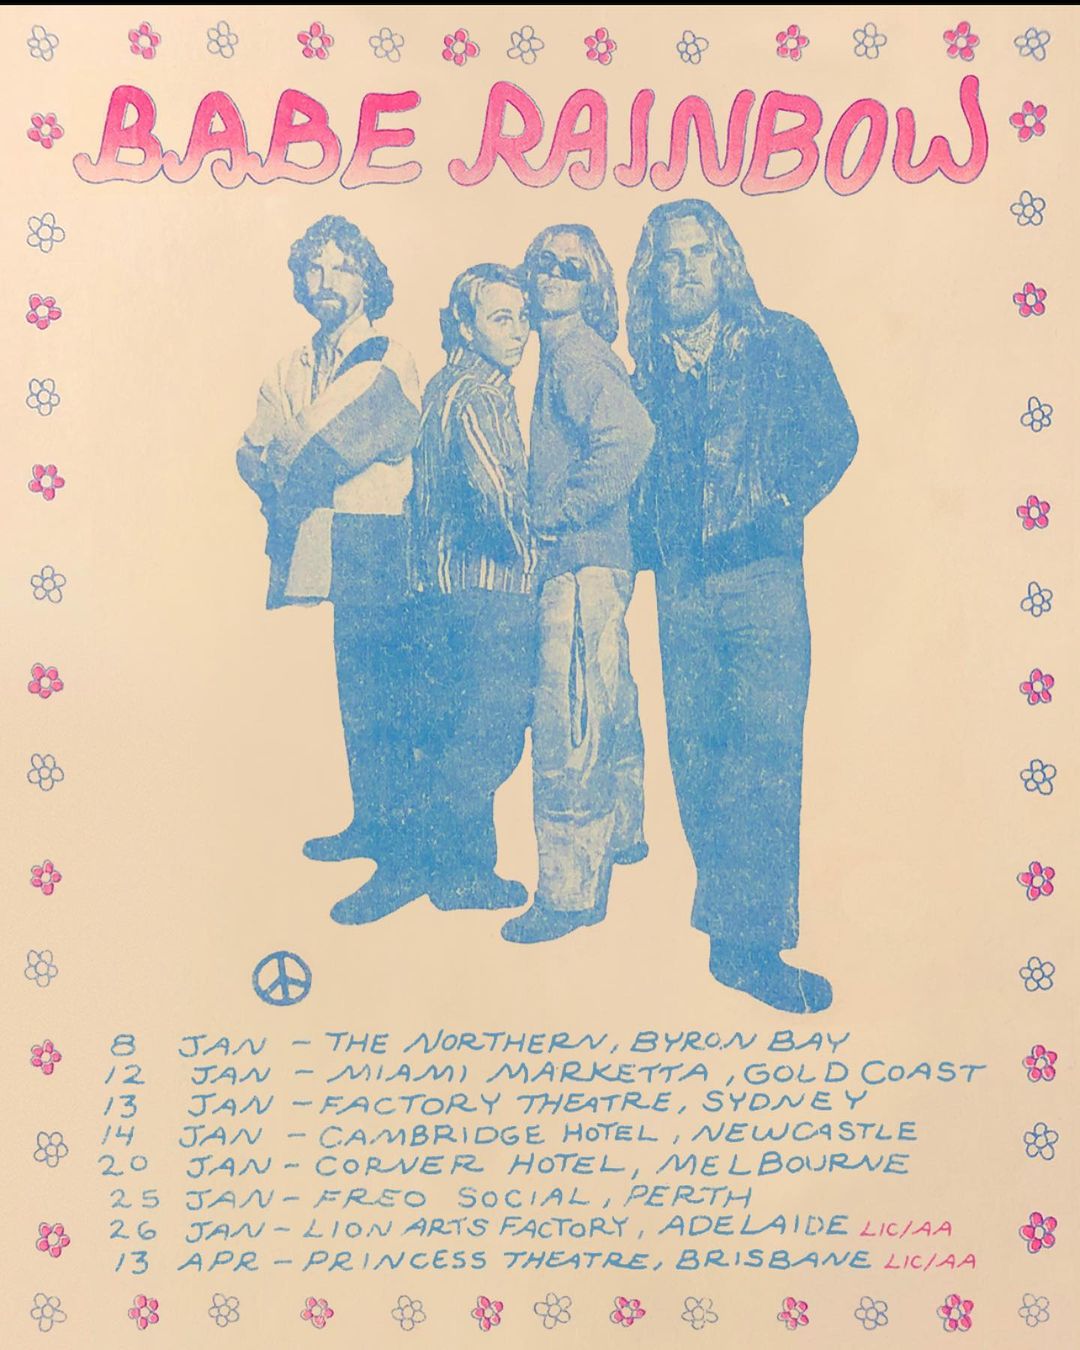 BABE RAINBOW
8 JAN - THE NORTHERN, BYRON BAY
12 JAN - MIAMI MARKETTA, GOLD COAST
13 JAN - FACTORY THEATRE, SYDNEY
14 JAN - CAMBRIDGE HOTEL, NEWCASTLE
20 JAN - CORNER HOTEL, MELBOURNE
25 JAN - FREO SOCIAL, PERTH
26 JAN - LION ARTS FACTORY, ADELAIDE LIC/AA
13 APR - PRINCESS THEATRE, BRISBANE LIC/AA